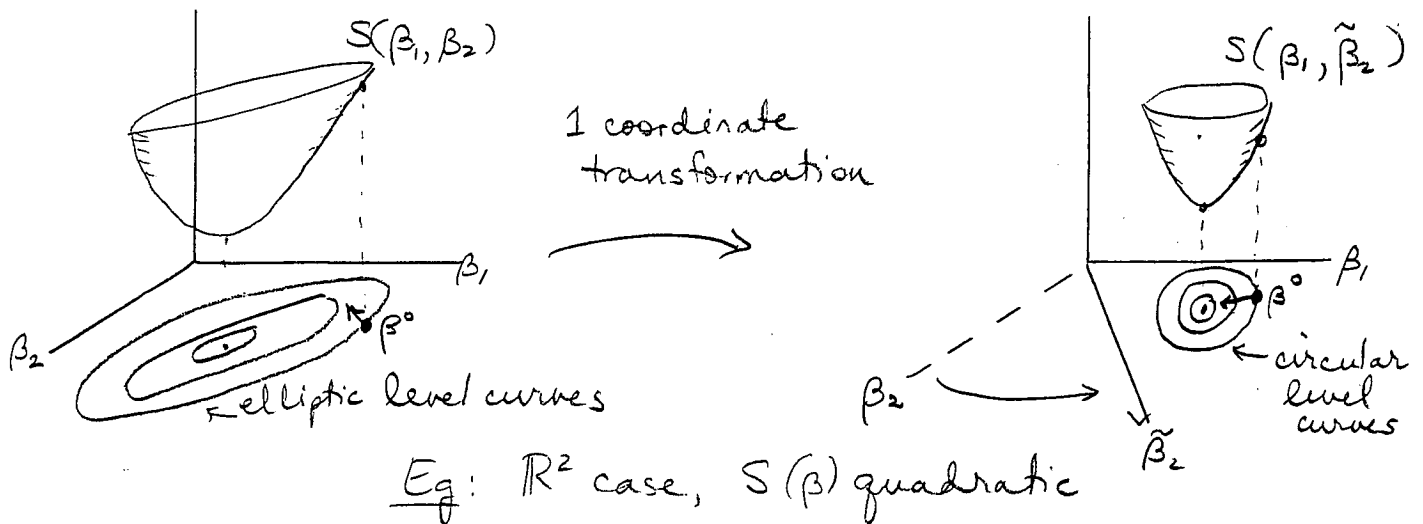 S(β₁, β₂)
β₁
β₂
β⁰
elliptic level curves
1 coordinate
transformation
S(β₁, β̃₂)
β₁
β⁰
circular
level
curves
β₂
β̃₂
Eg: ℝ² case, S(β) quadratic